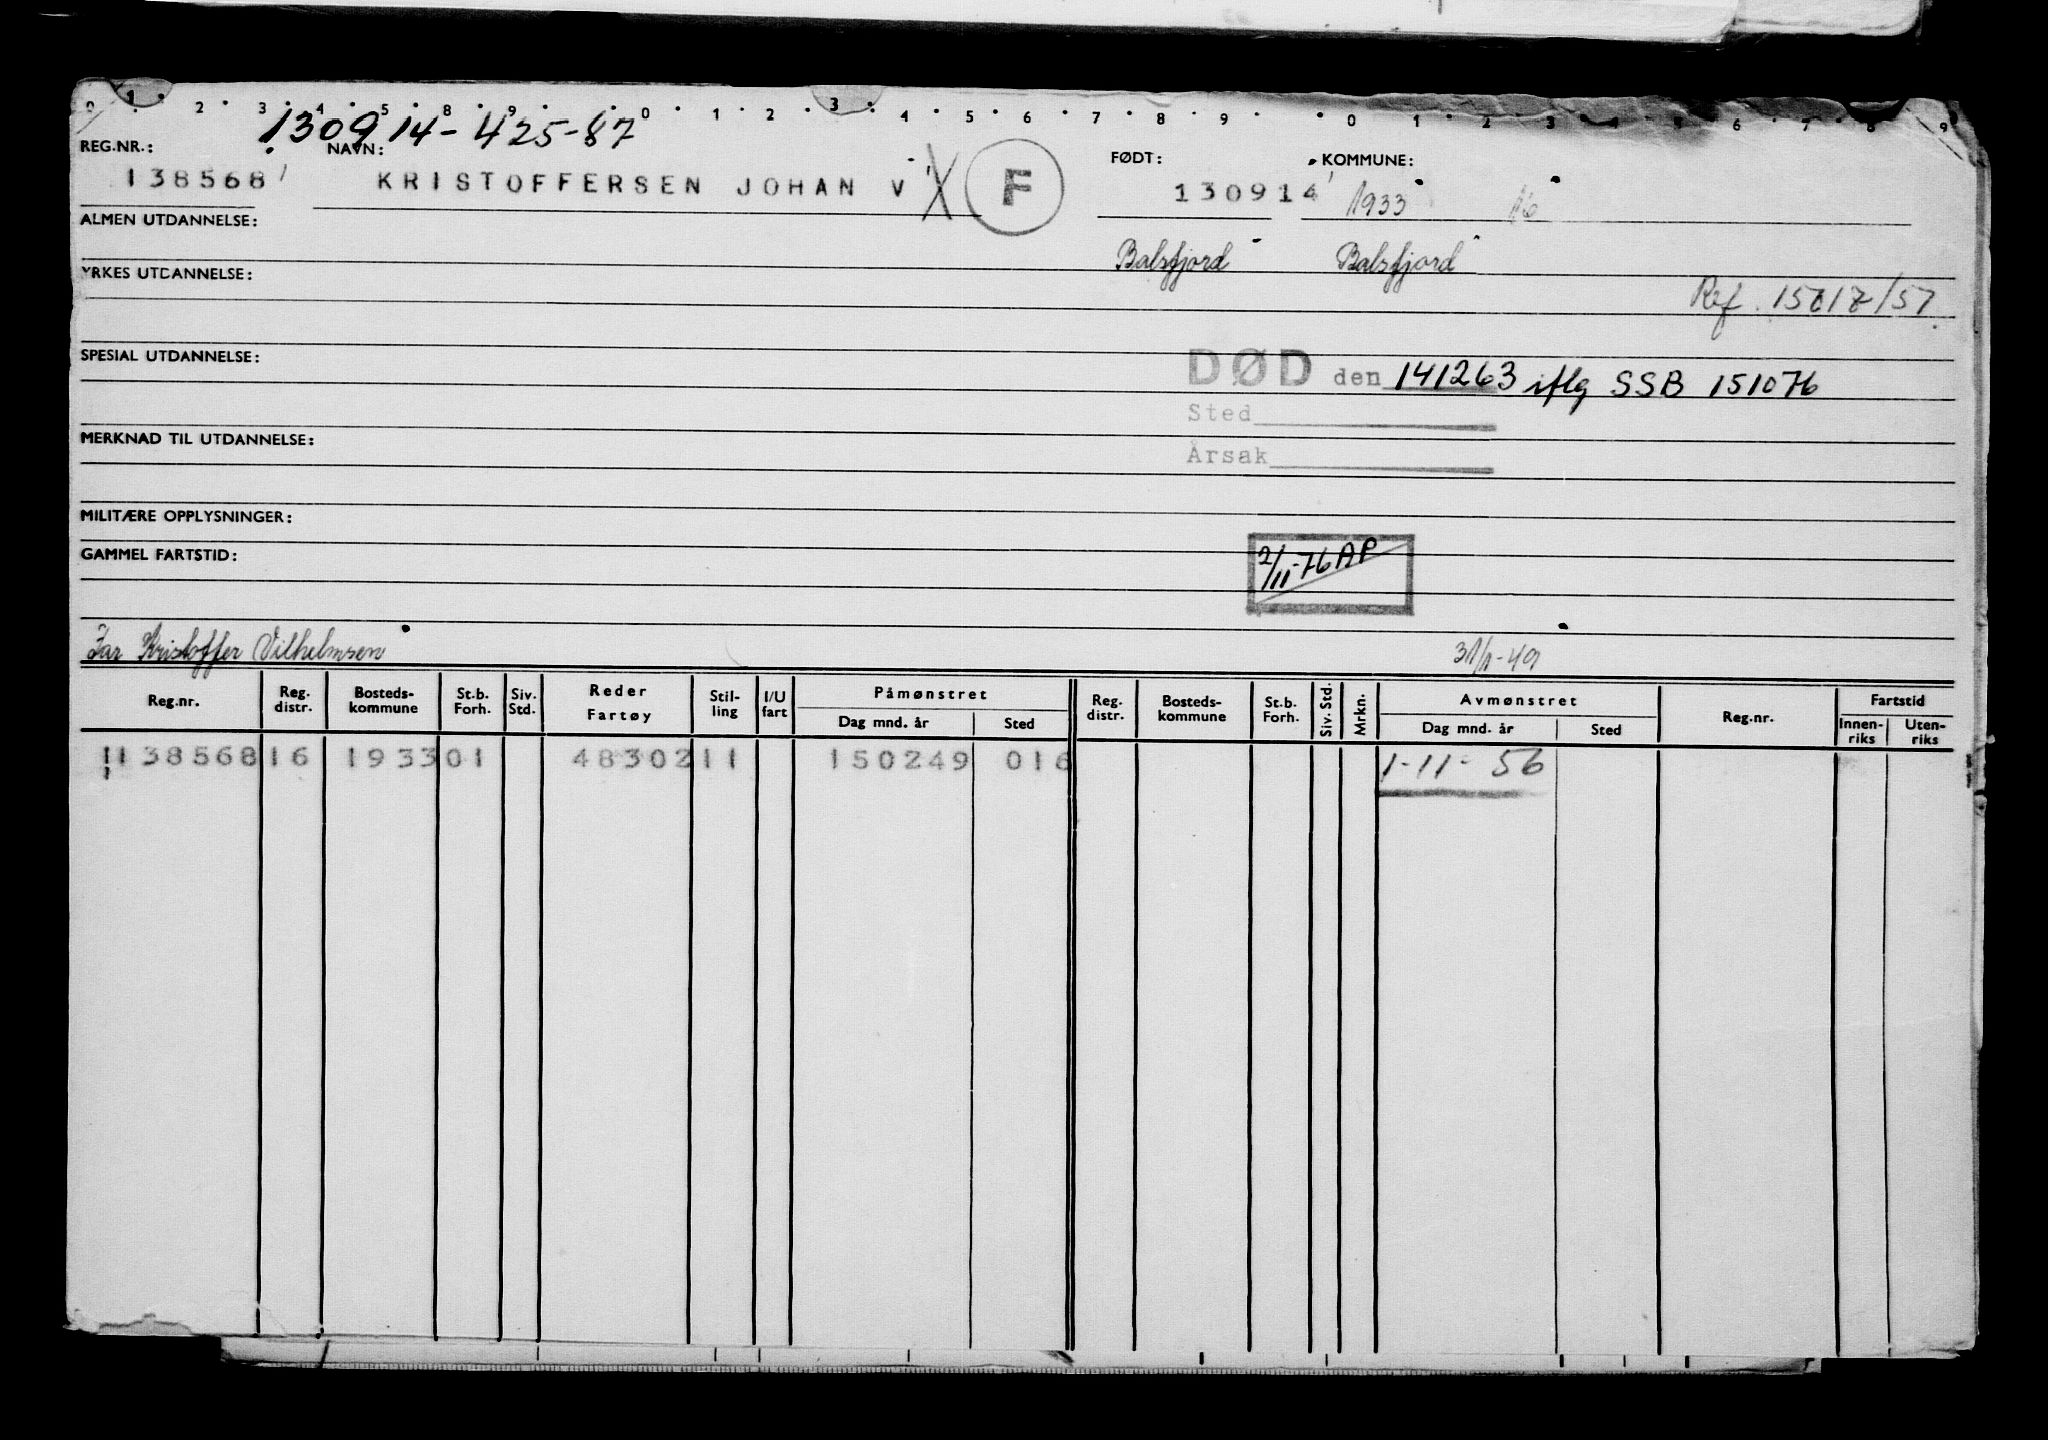 0 1 2 3 4 5 8 9 0 1 2 3 4 5 6 7 8 9 0 1 2 3 4 5 6 7 8 9
130914-425-87
REG.NR.: NAVN: FØDT: KOMMUNE:
138568 KRISTOFFERSEN JOHAN V X F 130914 1933 16
ALMEN UTDANNELSE:
Balsfjord Balsfjord
YRKES UTDANNELSE:
Ref.
SPESIAL UTDANNELSE:
DØD den 141263 iflg SSB 151076
Sted
MERKNAD TIL UTDANNELSE:
Årsak
MILITÆRE OPPLYSNINGER:
GAMMEL FARTSTID:
2/11-76 AP
Far Kristoffer Vilhelmsen
31/1-49
Reg.nr. Reg. distr. Bosteds-kommune St.b. Forh. Siv. Std. Reder Fartøy Stil-ling I/U fart Påmønstret Dag mnd. år Sted Reg. distr. Bosteds-kommune St.b. Forh. Siv. Std. Mrkn. Avmønstret Dag mnd. år Sted Reg.nr. Fartstid Innen-riks Uten-riks
138568 16 1933 01 48302 11 150249 016 1-11-56